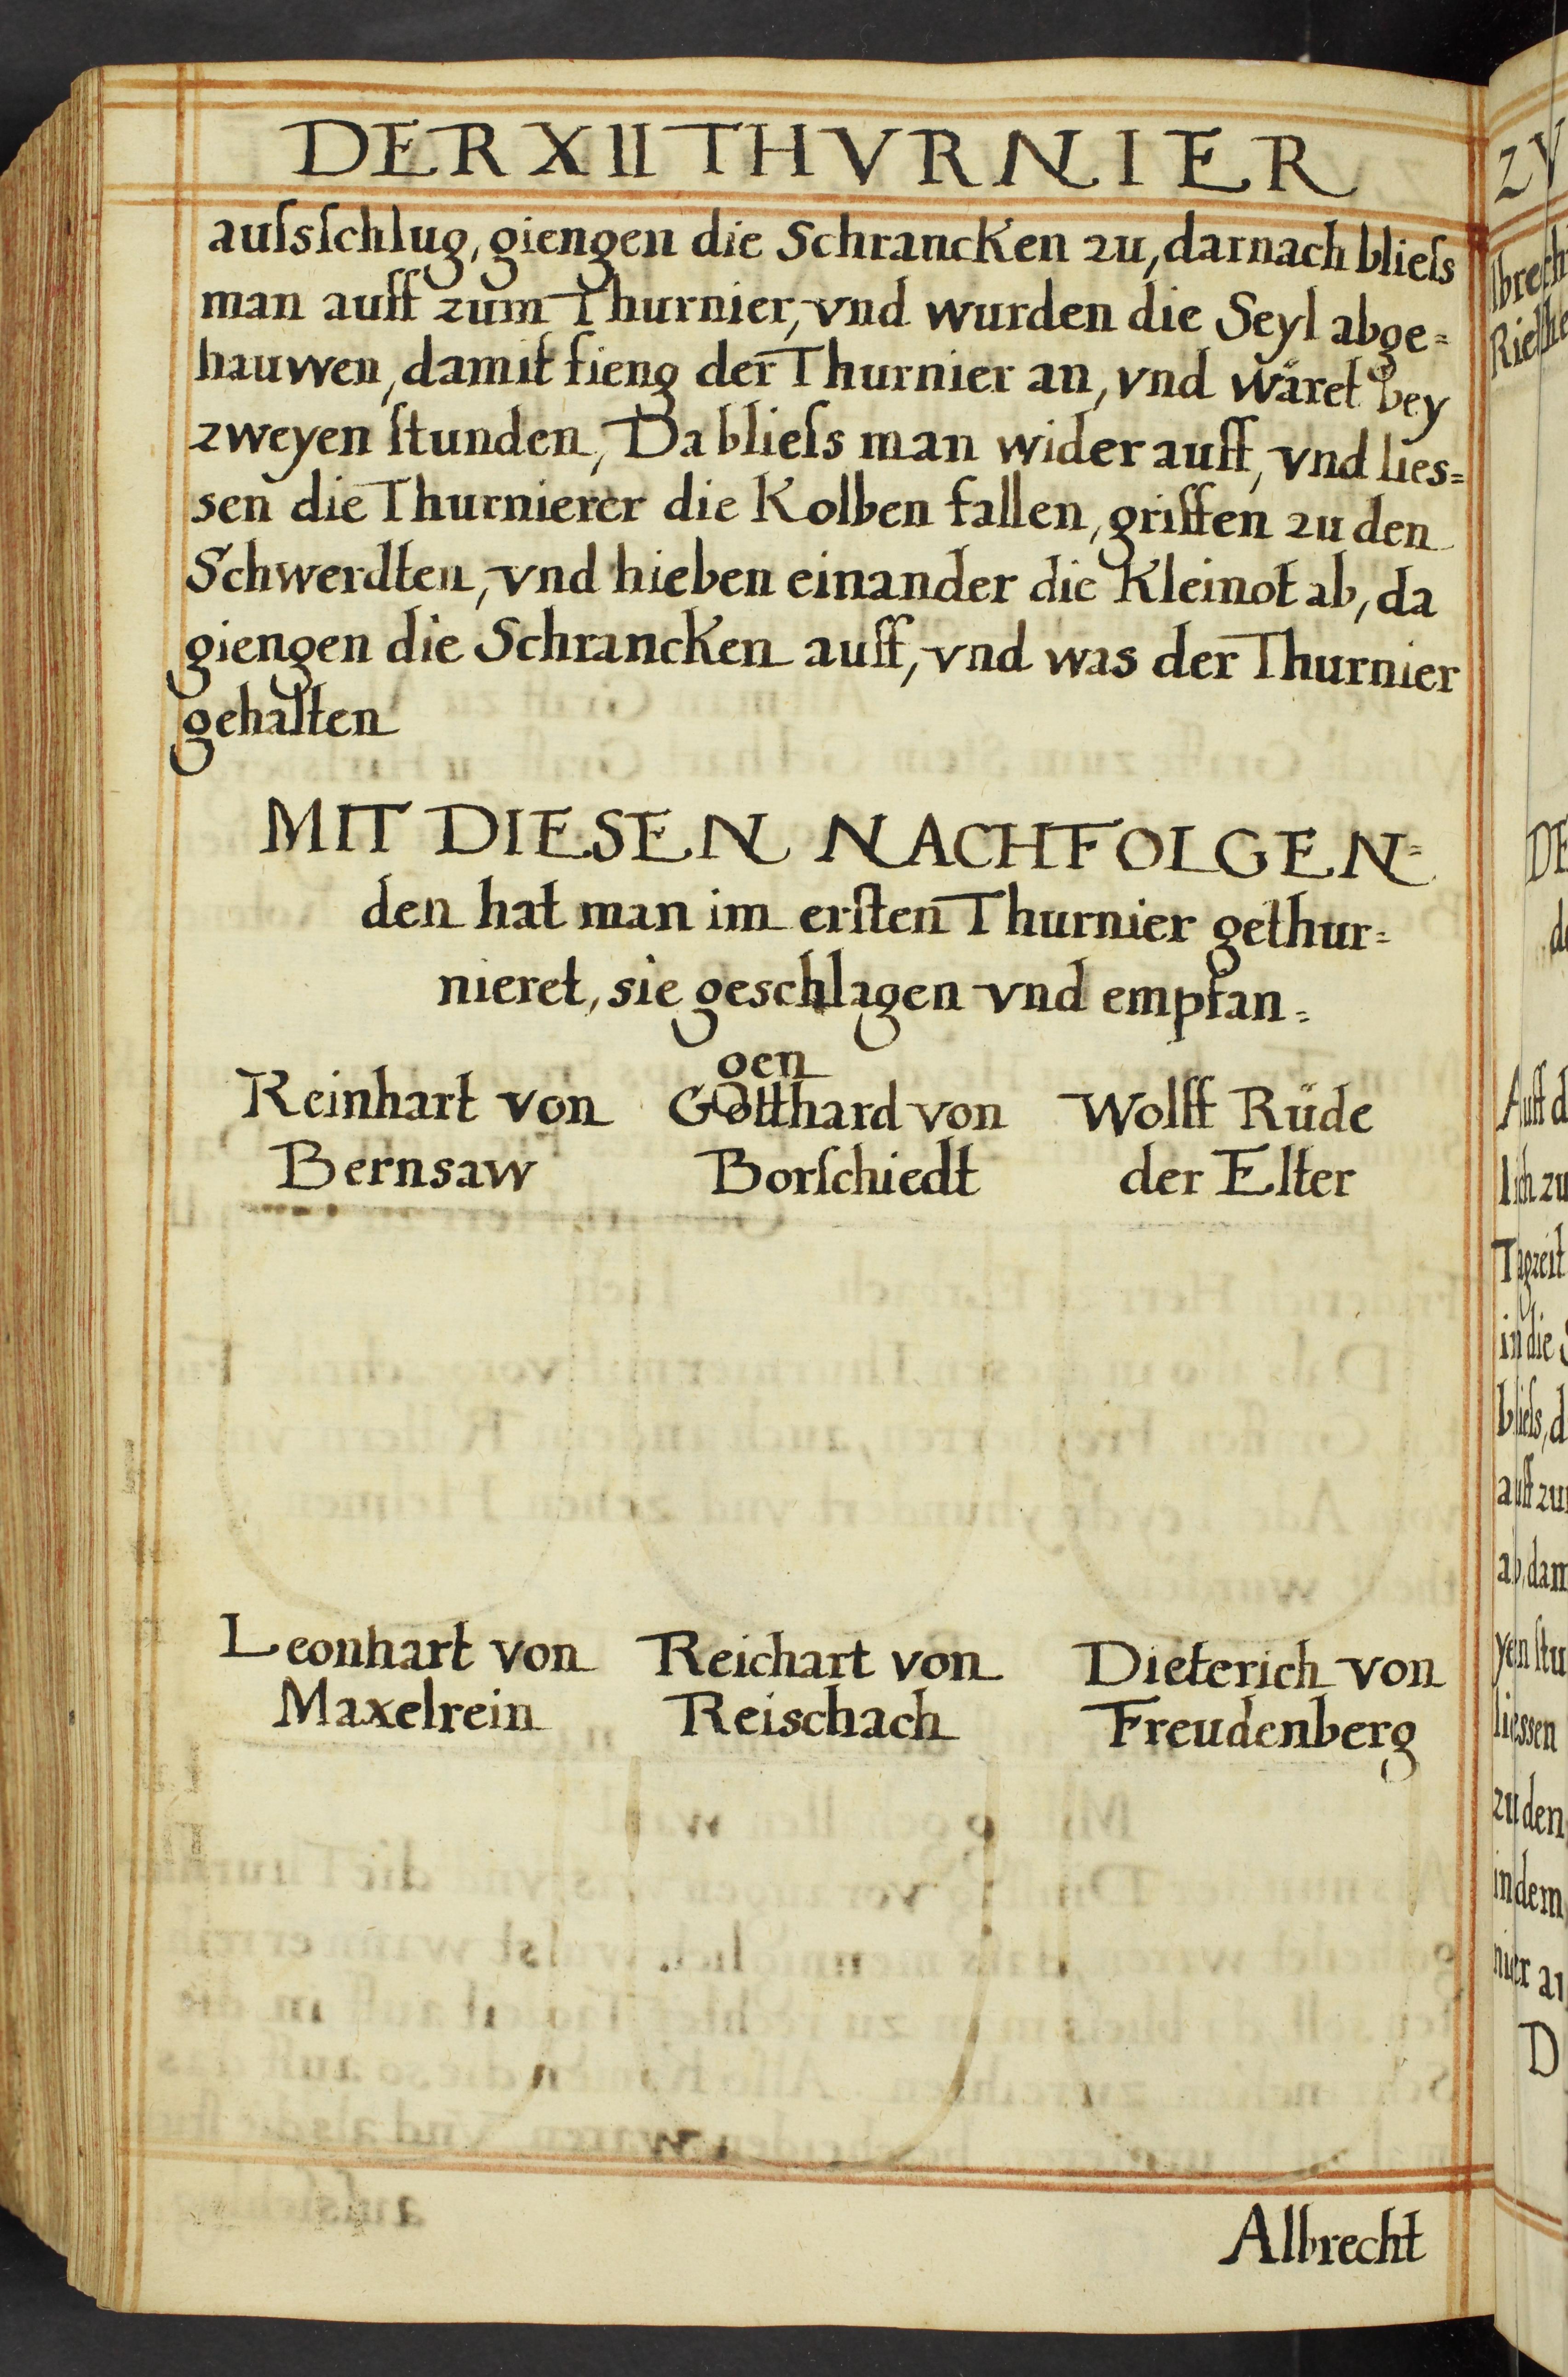 DER XII THVRNIER
auſsſchlug, giengen die Schrancken zu, darnach blieſs
man auff zum Thurnier, vnd wurden die Seyl abge=
hauwen, damit fieng der Thurnier an, vnd wäret bey
zweyen ſtunden, Da blieſs man wider auff, vnd lies=
sen die Thurnierer die Kolben fallen, griffen zu den
Schwerdten, vnd hieben einander die Kleinot ab, da
giengen die Schrancken auff, vnd was der Thurnier
gehalten
MIT DIESEN NACHFOLGEN=
den hat man im erſten Thurnier gethur=
nieret, sie geschlagen vnd empfan=
gen
Reinhart von
Bernsaw
Gotthard von
Borſchiedt
Wolff Rüde
der Elter
Leonhart von
Maxelrein
Reichart von
Reischach
Dieterich von
Freudenberg
Albrecht